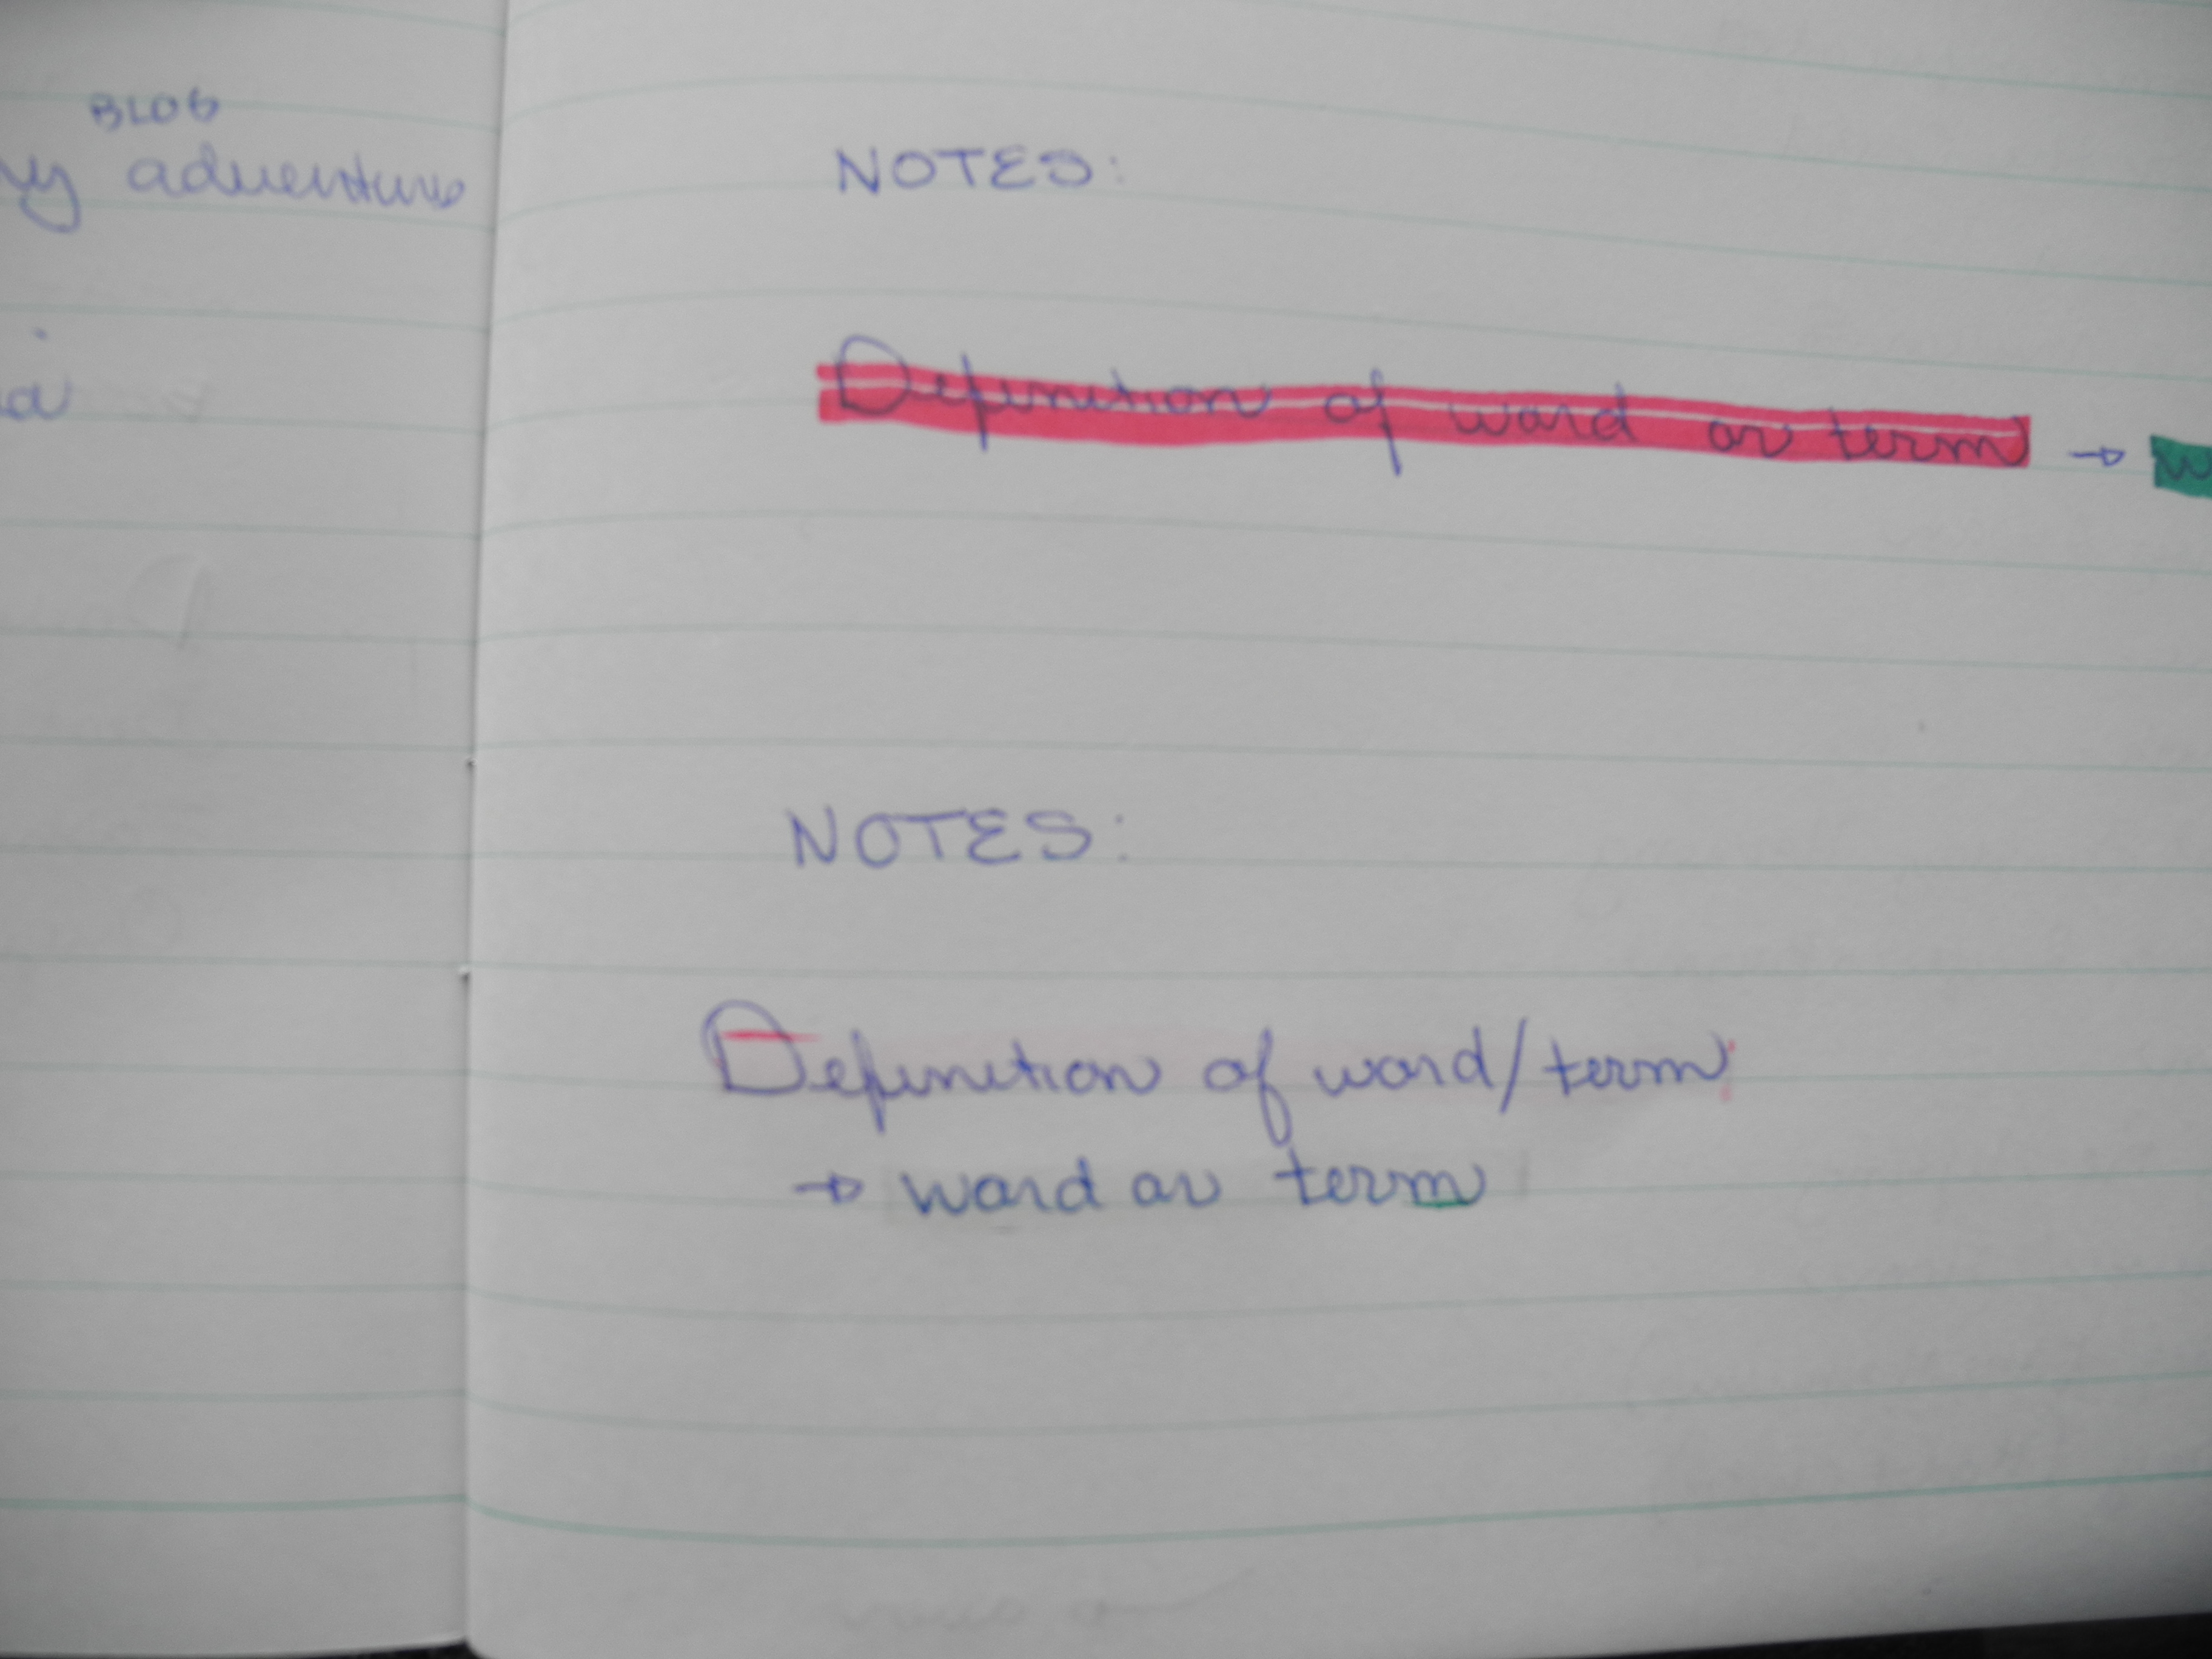 BLOG
adventure
NOTES:
Definition of word or term →
NOTES:
Definition of word/term
→ word or term